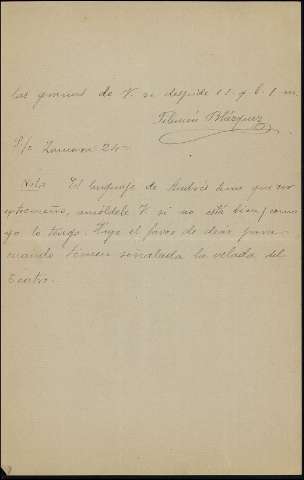 las gracias de V. se despide s.s. q. b. s. m.
Filemón Blázquez
S/c Zamora 24
Nota El lenguaje de Andrés tiene que ser
extremeño, amóldele V. si no está bien como
yo lo tengo. Haga el favor de decir para
cuando tienen señalada la velada del
Teatro.